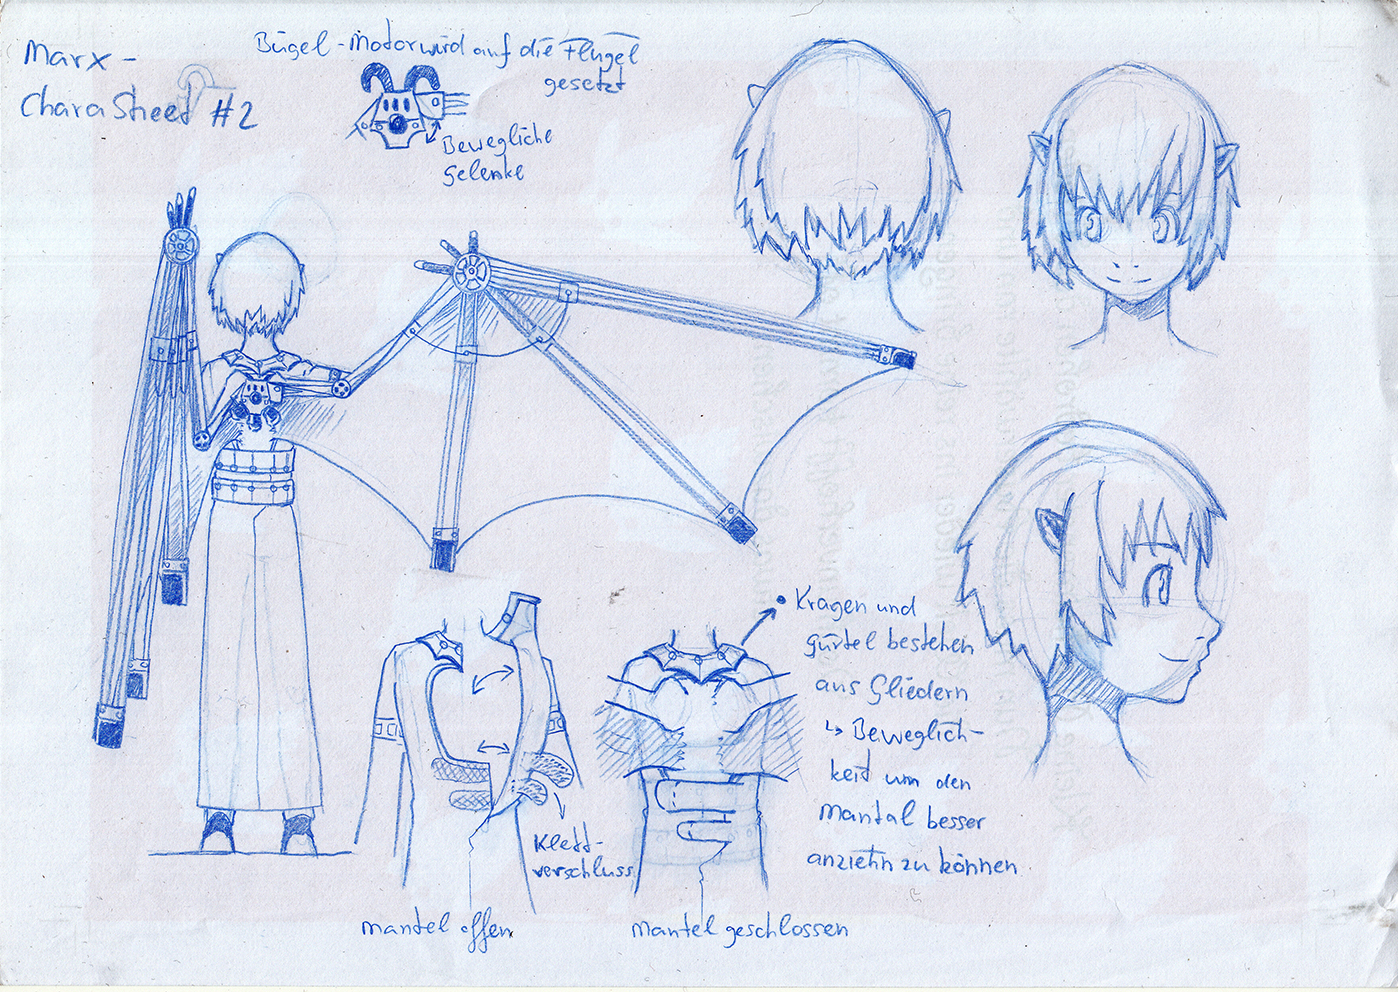 Marx -
Chara Sheet #2
Bügel-Motor wird auf die Flügel
gesetzt
Bewegliche
Gelenke
• Kragen und
Gürtel bestehen
aus Gliedern
↳ Beweglich-
keit um den
Mantal besser
anziehn zu können
Klett-
verschluss
Mantel offen
Mantel geschlossen